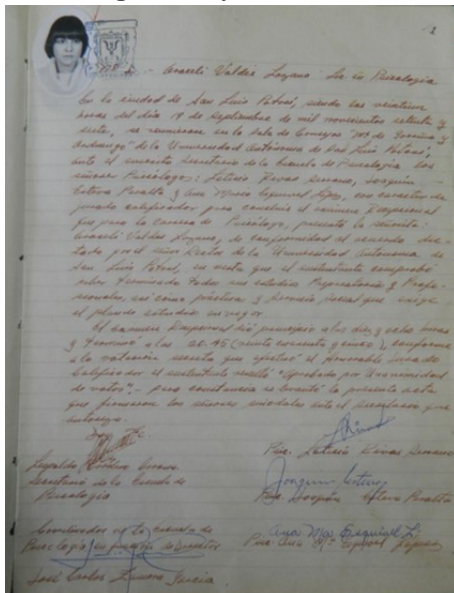 2
Araceli Valdez Lozano. Lic. en Psicología
En la ciudad de San Luis Potosí, siendo las veintiun
horas del día 19 de Septiembre de mil novecientos setenta y
siete, se reunieron en la Sala de Consejos "M. de
" de la Universidad Autónoma de San Luis Potosí,
ante el suscrito Secretario de la Escuela de Psicología los
señores Psicólogos: Leticia Rivas Serrano, Joaquín
Esteva Peralta y Ana María Esquivel, con caracter de
jurado calificador para constituir el examen Recepcional
que para la carrera de Psicólogo, presentó la señorita:
Araceli Valdez Lozano, de conformidad al acuerdo dic-
tado por el señor Rector de la Universidad Autónoma de
San Luis Potosí, en vista que el sustentante comprobó
haber terminado todos sus estudios Preparatorios y Profe-
sionales, así como práctica y Servicio Social que exige
el plan de estudios en vigor.
El Exámen Recepcional dió principio a las diez y ocho horas
y terminó a las 20:45 (veinte cuarenta y cinco), conforme
a la votación secreta que efectuó el Honorable Jurado
Calificador el sustentante resultó "Aprobado por Unanimidad
de votos". - para constancia se levantó la presente acta
que firmaron los señores sinodales ante el Secretario que
autoriza.
Psic. Leticia Rivas Serrano
Leopoldo
Secretario de la Escuela de
Psicología
Joaquín Esteva
Psic. Joaquín Esteva Peralta
Coordinador de la Escuela de
Psicología en funciones de Director
Ana Ma. Esquivel L.
Psic. Ana Ma. Esquivel
José Carlos García